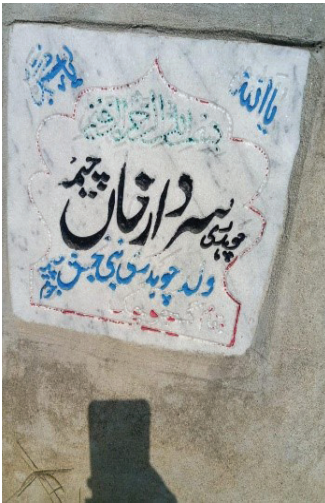 یا اللہ
یا محمد
بسم اللہ الرحمن الرحیم
چوہدری سردار خان چیمہ
ولد چوہدری نبی بخش چیمہ